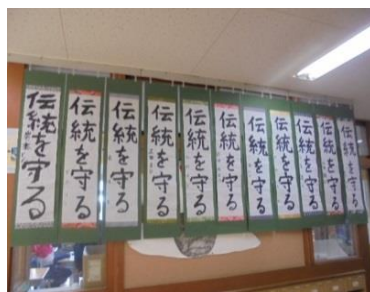 伝統を守る
伝統を守る
伝統を守る
伝統を守る
伝統を守る
伝統を守る
伝統を守る
伝統を守る
伝統を守る
伝統を守る
伝統を守る